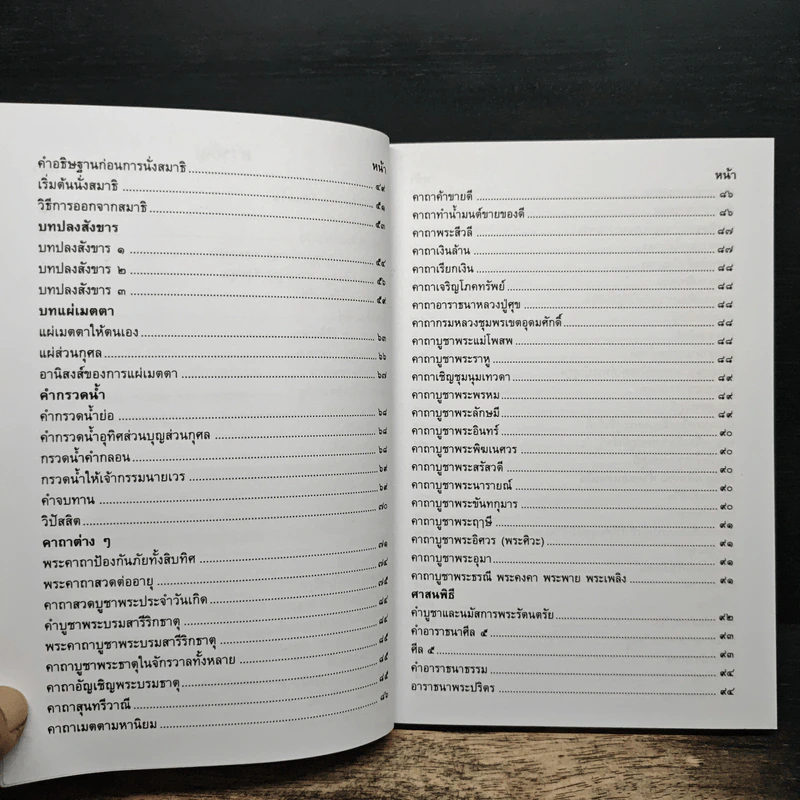 หน้า
คำอธิษฐานก่อนการนั่งสมาธิ ๔๙
เริ่มต้นนั่งสมาธิ ๕๑
วิธีการออกจากสมาธิ ๕๓
บทปลงสังขาร
บทปลงสังขาร ๑ ๕๔
บทปลงสังขาร ๒ ๕๖
บทปลงสังขาร ๓ ๕๙
บทแผ่เมตตา
แผ่เมตตาให้ตนเอง ๖๓
แผ่ส่วนกุศล ๖๖
อานิสงส์ของการแผ่เมตตา ๖๗
คำกรวดน้ำ
คำกรวดน้ำย่อ ๖๘
คำกรวดน้ำอุทิศส่วนบุญส่วนกุศล ๖๘
กรวดน้ำคำกลอน ๖๘
กรวดน้ำให้เจ้ากรรมนายเวร ๖๙
คำจบทาน ๖๙
วิปัสสิต ๗๐
คาถาต่าง ๆ
พระคาถาป้องกันภัยทั้งสิบทิศ ๗๑
พระคาถาสวดต่ออายุ ๗๔
คาถาสวดบูชาพระประจำวันเกิด ๗๕
คำบูชาพระบรมสารีริกธาตุ ๘๔
พระคาถาบูชาพระบรมสารีริกธาตุ ๘๔
คาถาบูชาพระธาตุในจักรวาลทั้งหลาย ๘๕
คาถาอัญเชิญพระบรมธาตุ ๘๕
คาถาสุนทรีวาณี ๘๕
คาถาเมตตามหานิยม ๘๖
หน้า
คาถาค้าขายดี ๘๖
คาถาทำน้ำมนต์ขายของดี ๘๖
คาถาพระสีวลี ๘๗
คาถาเงินล้าน ๘๗
คาถาเรียกเงิน ๘๘
คาถาเจริญโภคทรัพย์ ๘๘
คาถาอาราธนาหลวงปู่ศุข ๘๘
คาถากรมหลวงชุมพรเขตอุดมศักดิ์ ๘๘
คาถาบูชาพระแม่โพสพ ๘๘
คาถาบูชาพระราหู ๘๘
คาถาเชิญชุมนุมเทวดา ๘๙
คาถาบูชาพระพรหม ๘๙
คาถาบูชาพระลักษมี ๘๙
คาถาบูชาพระอินทร์ ๙๐
คาถาบูชาพระพิฆเนศวร ๙๐
คาถาบูชาพระสรัสวดี ๙๐
คาถาบูชาพระนารายณ์ ๙๐
คาถาบูชาพระขันทกุมาร ๙๐
คาถาบูชาพระฤๅษี ๙๑
คาถาบูชาพระอิศวร (พระศิวะ) ๙๑
คาถาบูชาพระอุมา ๙๑
คาถาบูชาพระธรณี พระคงคา พระพาย พระเพลิง ๙๑
ศาสนพิธี
คำบูชาและนมัสการพระรัตนตรัย ๙๒
คำอาราธนาศีล ๕ ๙๓
ศีล ๕ ๙๓
คำอาราธนาธรรม ๙๔
อาราธนาพระปริตร ๙๔